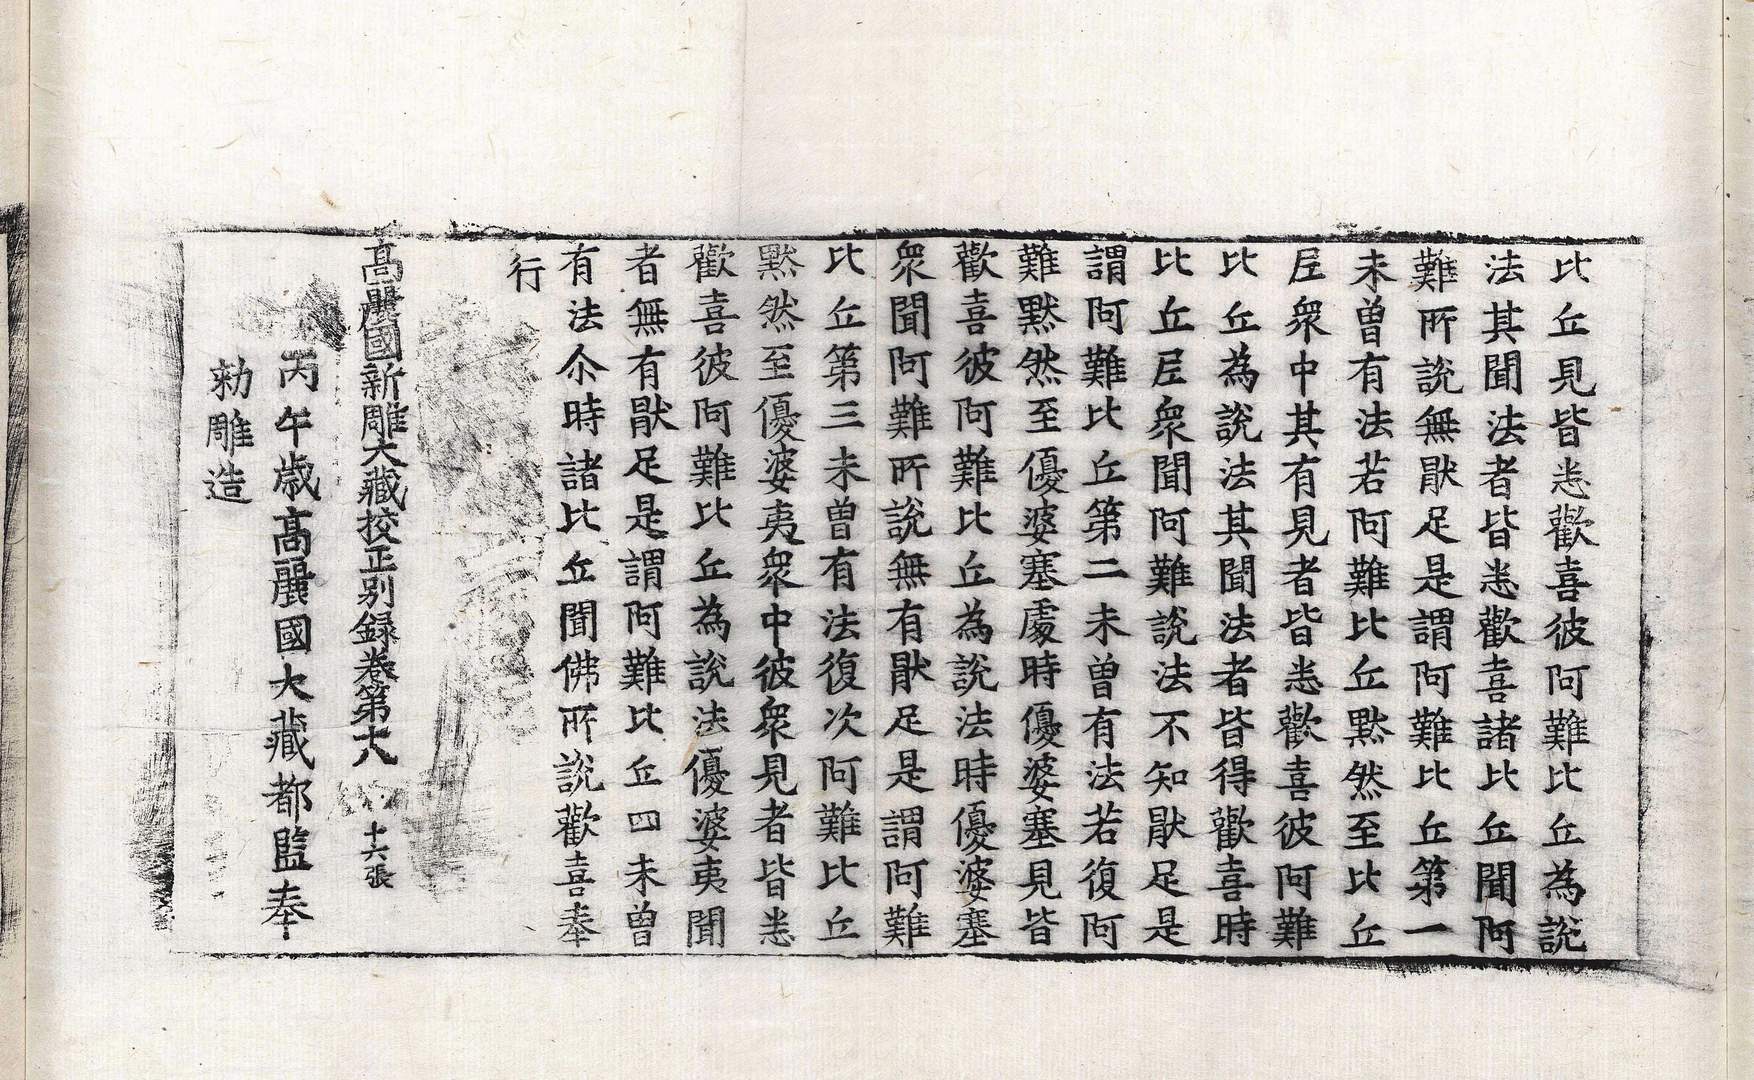 比丘見皆恚歡喜彼阿難比丘為說
法其聞法者皆恚歡喜諸比丘聞阿
難所說無猒足是謂阿難比丘第一
未曾有法若阿難比丘黙然至比丘
尼衆中其有見者皆恚歡喜彼阿難
比丘為說法其聞法者皆得歡喜時
比丘尼衆聞阿難說法不知猒足是
謂阿難比丘第二未曾有法若復阿
難黙然至優婆塞處時優婆塞見皆
歡喜彼阿難比丘為說法時優婆塞
衆聞阿難所說無有猒足是謂阿難
比丘第三未曾有法復次阿難比丘
黙然至優婆夷衆中彼衆見者皆恚
歡喜彼阿難比丘為說法優婆夷聞
者無有猒足是謂阿難比丘四未曾
有法尒時諸比丘聞佛所說歡喜奉
行
高麗國新雕大藏校正別録卷第六 十六張
丙午歳高麗國大藏都監奉
勑雕造